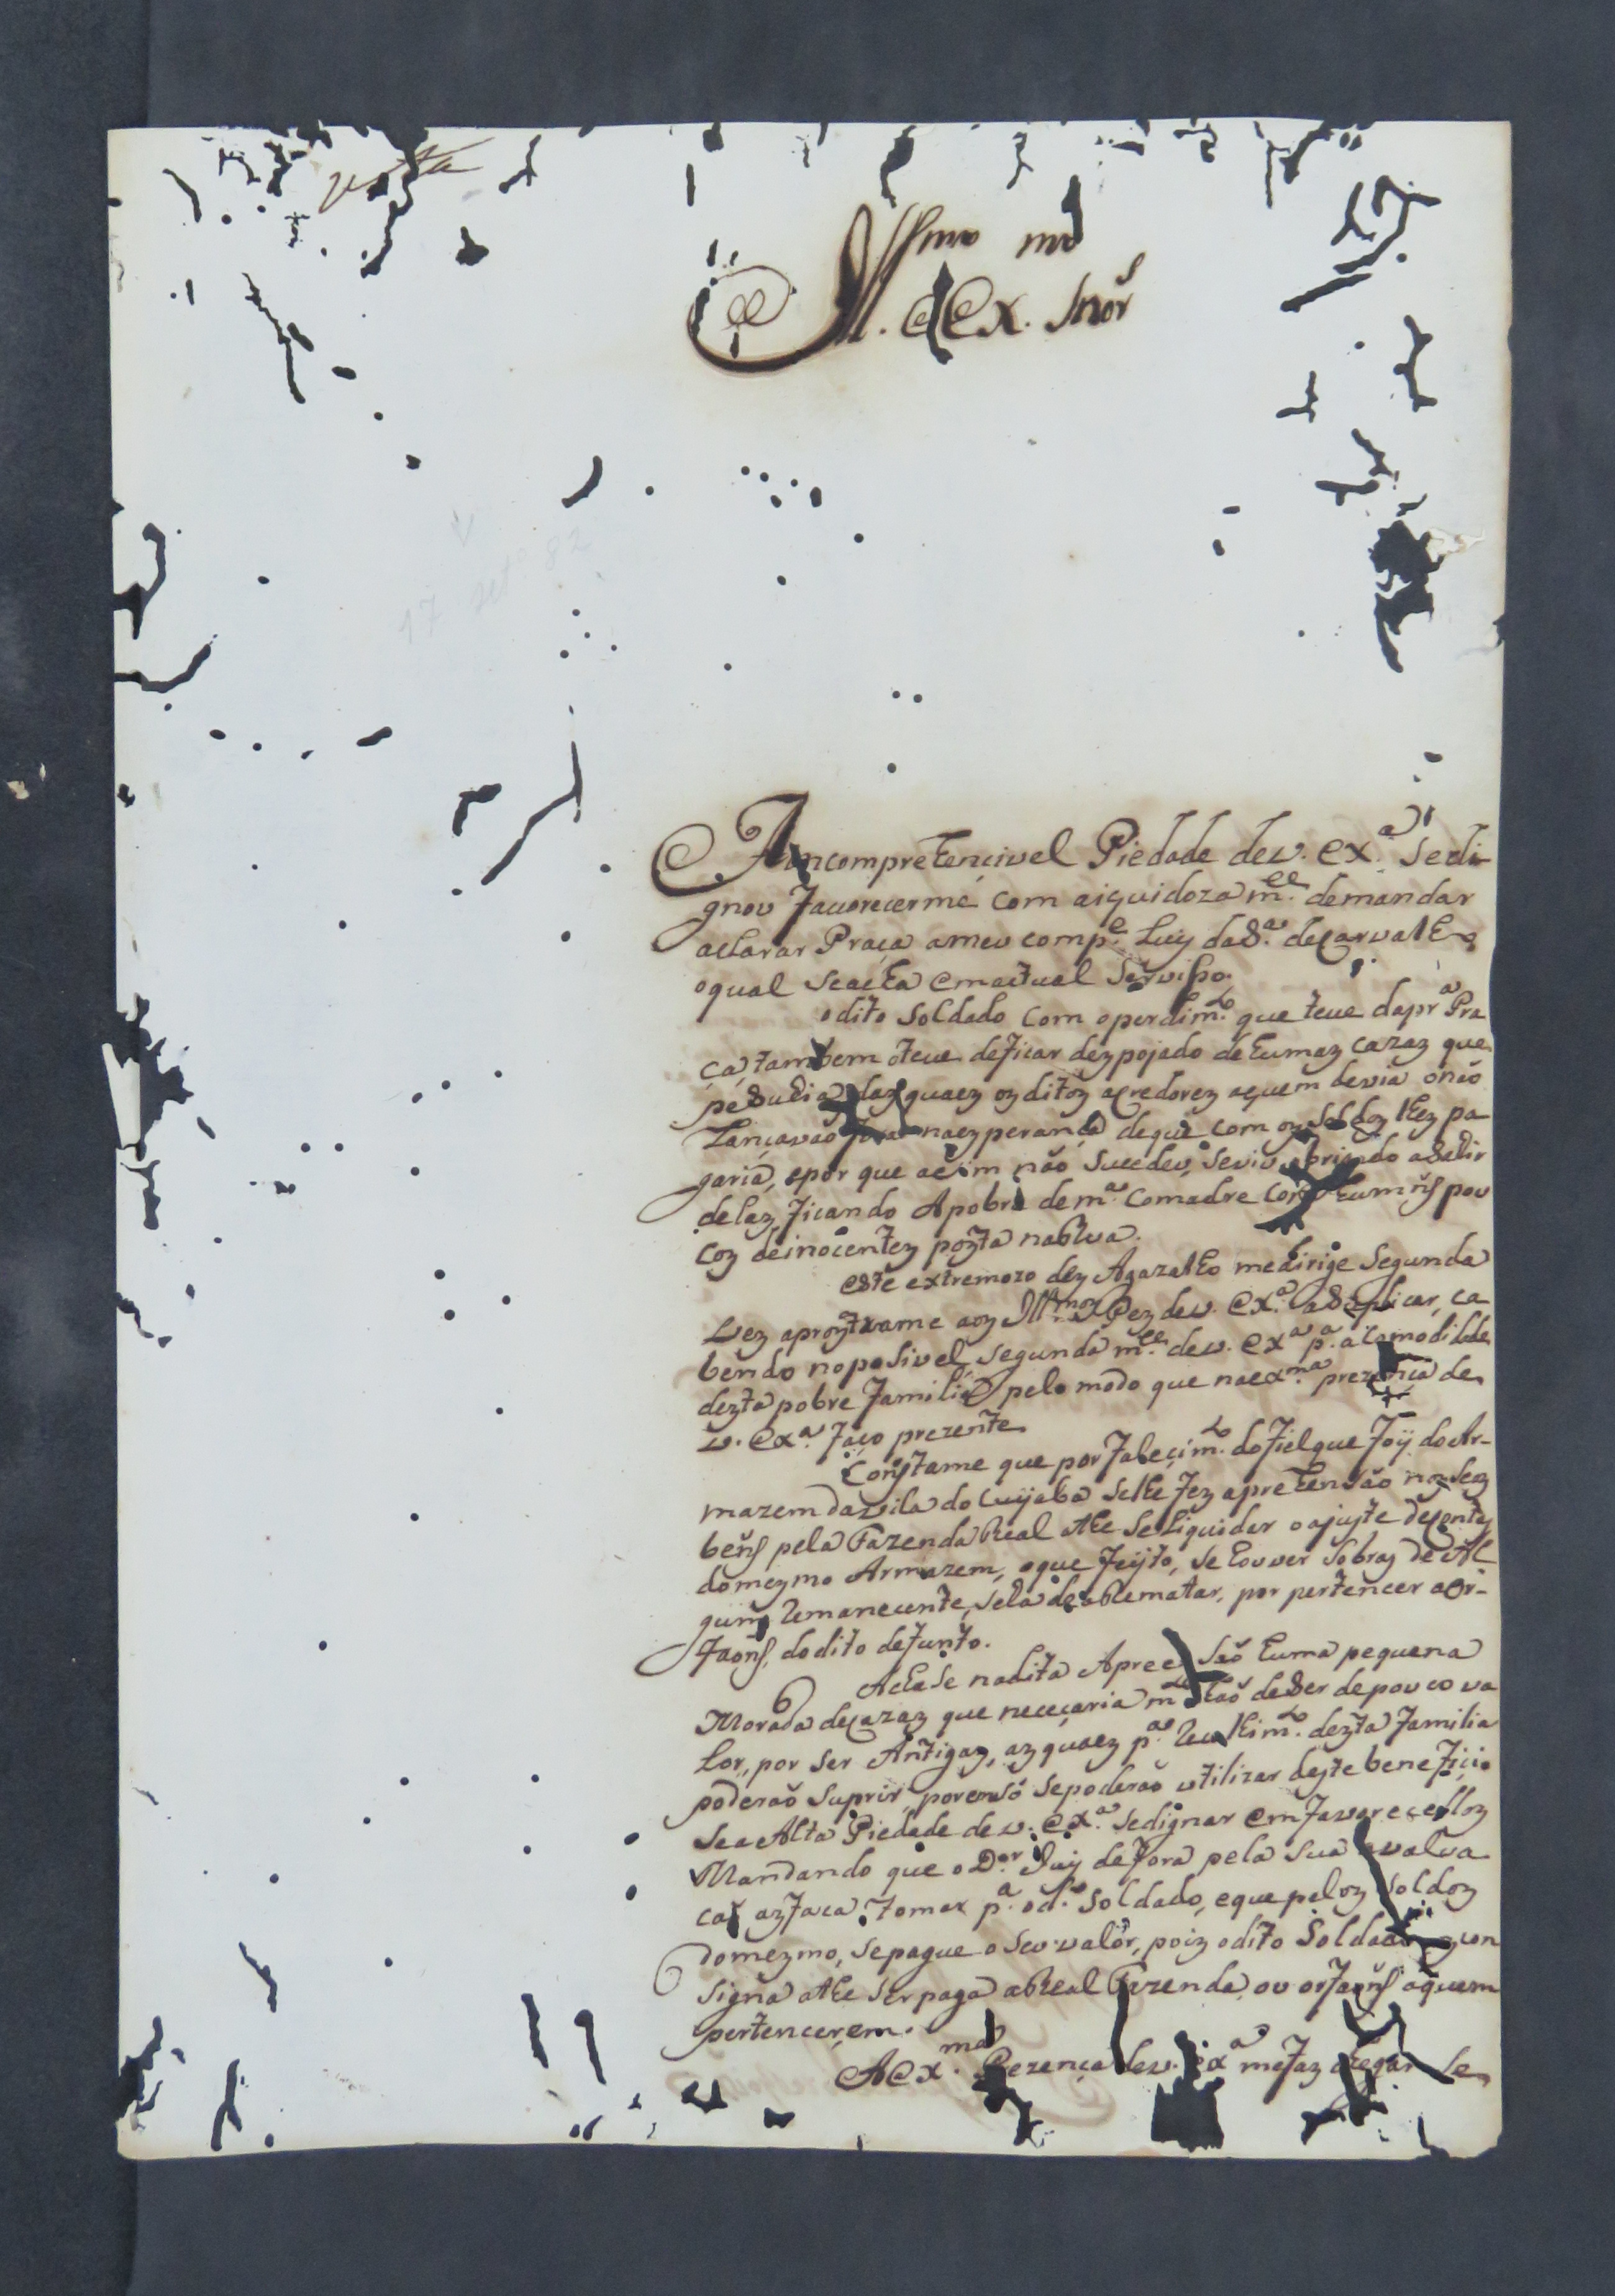 vista
Illmo e Exmo Snor
17 set 82
A incomprehencivel Piedade de v. exª. se di-
gnou favorecerme com a iquidoza m.ce de mandar
aclarar Praça a meu comp.e Luiz da Sª. de Carvalho
o qual se acha em actual servisso.
o dito soldado com o perdim.to que teve da prª Pra
ça, tambem o teve de ficar dezpojado de humaz cazaz que
pesuhia, daz quaez oz ditoz acredorez a quem devia o não
lançavão fora na ezperança de que com oz soldoz lhez pa-
garia, e por que acim não sucedeu, se viu obrigado a sahir
delaz, ficando A pobre de mª. comadre com hum ñs pou
coz de inocentez pozta na Rua.
este extremozo dez Agazalho me dirige segunda
vez a proztrarme aoz Ill.moz Pez de v. Exª. a suplicar, ca
bendo no posivel, segunda m.ce de v. Exª pª. a comodidade
dezta pobre familia pelo modo que na exª.ma prezença de
v. Exª. faço prezente
Constame que por falecim.to do fiel que foy do Ar-
mazem da vila do Cuyaba se lhe fez aprehensão noz seoz
beñs pela Fazenda Real athe se liquidar o ajuste de contaz
do mezmo Armazem, o que feyto, se houver sobraz de Al
gum Remanecente, se ha de aRematar, por pertencer a or-
faoñs, do dito defunto.
Achase na dita Apreensão huma pequena
Morada de cazaz que neceçaria m.te hão de ser de pouco va
lor, por ser Antigaz, az quaez pª. Recolhim.to dezta familia
poderaõ suprir, porem só se poderaõ utilizar deste beneficio
se a Alta Piedade de v. exª. se dignar em favorecelloz
Mandando que o D.or Juiz de fora pela sua avalua
caõ az faca tomar pª. o d.o soldado, e que peloz soldoz
do mezmo, se pague o seu valor, poiz o dito soldado oz con
signa athe ser paga a Real Fazenda, ou orfaoñs a quem
pertencerem.
A Ex.ma Prezença de v. exª me faz chegar se